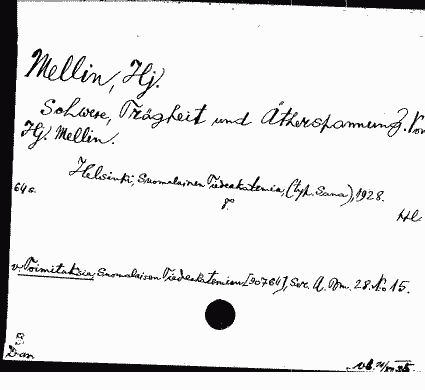 Mellin, Hj.
Schwere, Trägheit und Ätherspannung. Von
Hj. Mellin.
Helsinki, Suomalainen Tiedeakatemia, (typ. Sana), 1928.
64 s. 8°.
Hl.
v. Toimituksia, Suomalaisen Tiedeakatemian [90764], Ser. A. Tom. 28. No 15.
B
Dan